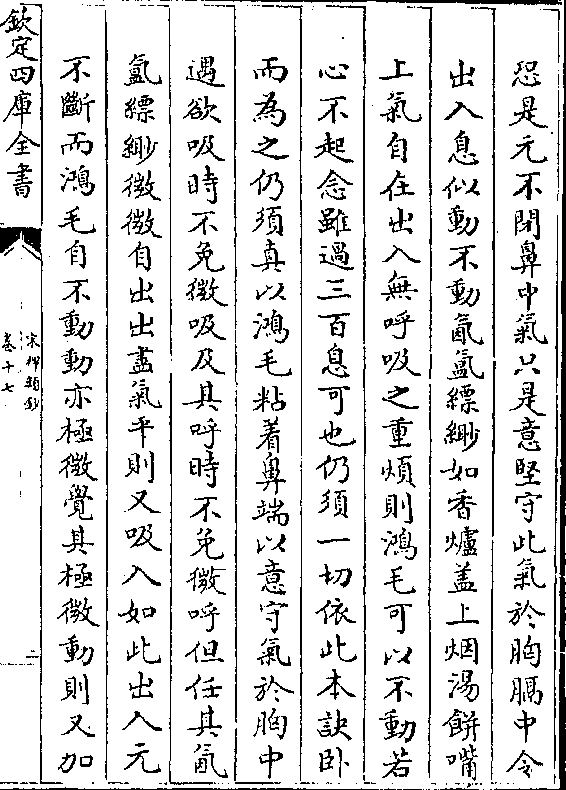 恐是元不閉鼻中氣只是意堅守此氣於胸膈中令
出入息似動不動氤氳縹緲如香爐盖上烟湯餅嘴
上氣自在出入無呼吸之重煩則鴻毛可以不動若
心不起念雖過三百息可也仍須一切依此本訣卧
而為之仍須真以鴻毛粘着鼻端以意守氣於胸中
遇欲吸時不免微吸及其呼時不免微呼但任其氤
氳縹緲微微自出出盡氣平則又吸入如此出入元
不斷而鴻毛自不動動亦極微覺其極微動則又加
欽定四庫全書
宋稗類鈔
卷十七
二